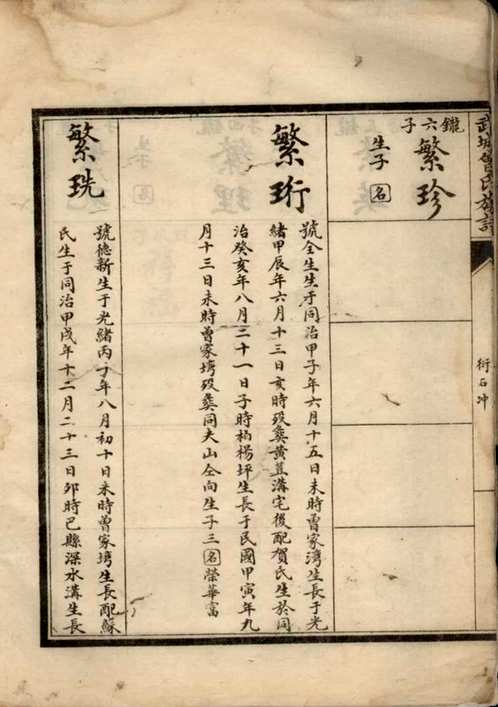 武城曾氏族譜
衍石冲
鑨六子
繁珍
生子名
繁珩
號全生生于同治甲子年六月十五日未時曾家湾生長于光
緒甲辰年六月十三日亥時歿葬黄荳溝宅後配賀氏生於同
治癸亥年八月二十一日子時柏楊坪生長于民國甲寅年九
月十三日未時曾家塆歿葬同夫山仝向生子三名榮華富
繁珗
號德新生于光緒丙子年八月初十日未時曾家塆生長配蘇
氏生于同治甲戌年十二月二十三日卯時巴縣深水溝生長